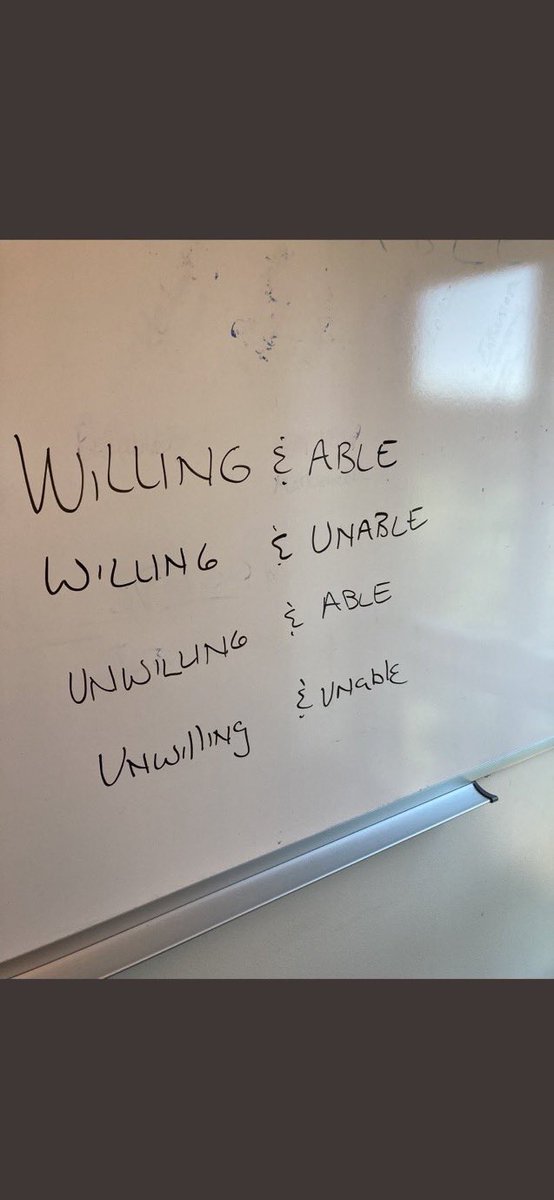 WILLING & ABLE
WILLING & UNABLE
UNWILLING & ABLE
UNWIllINg & UNable